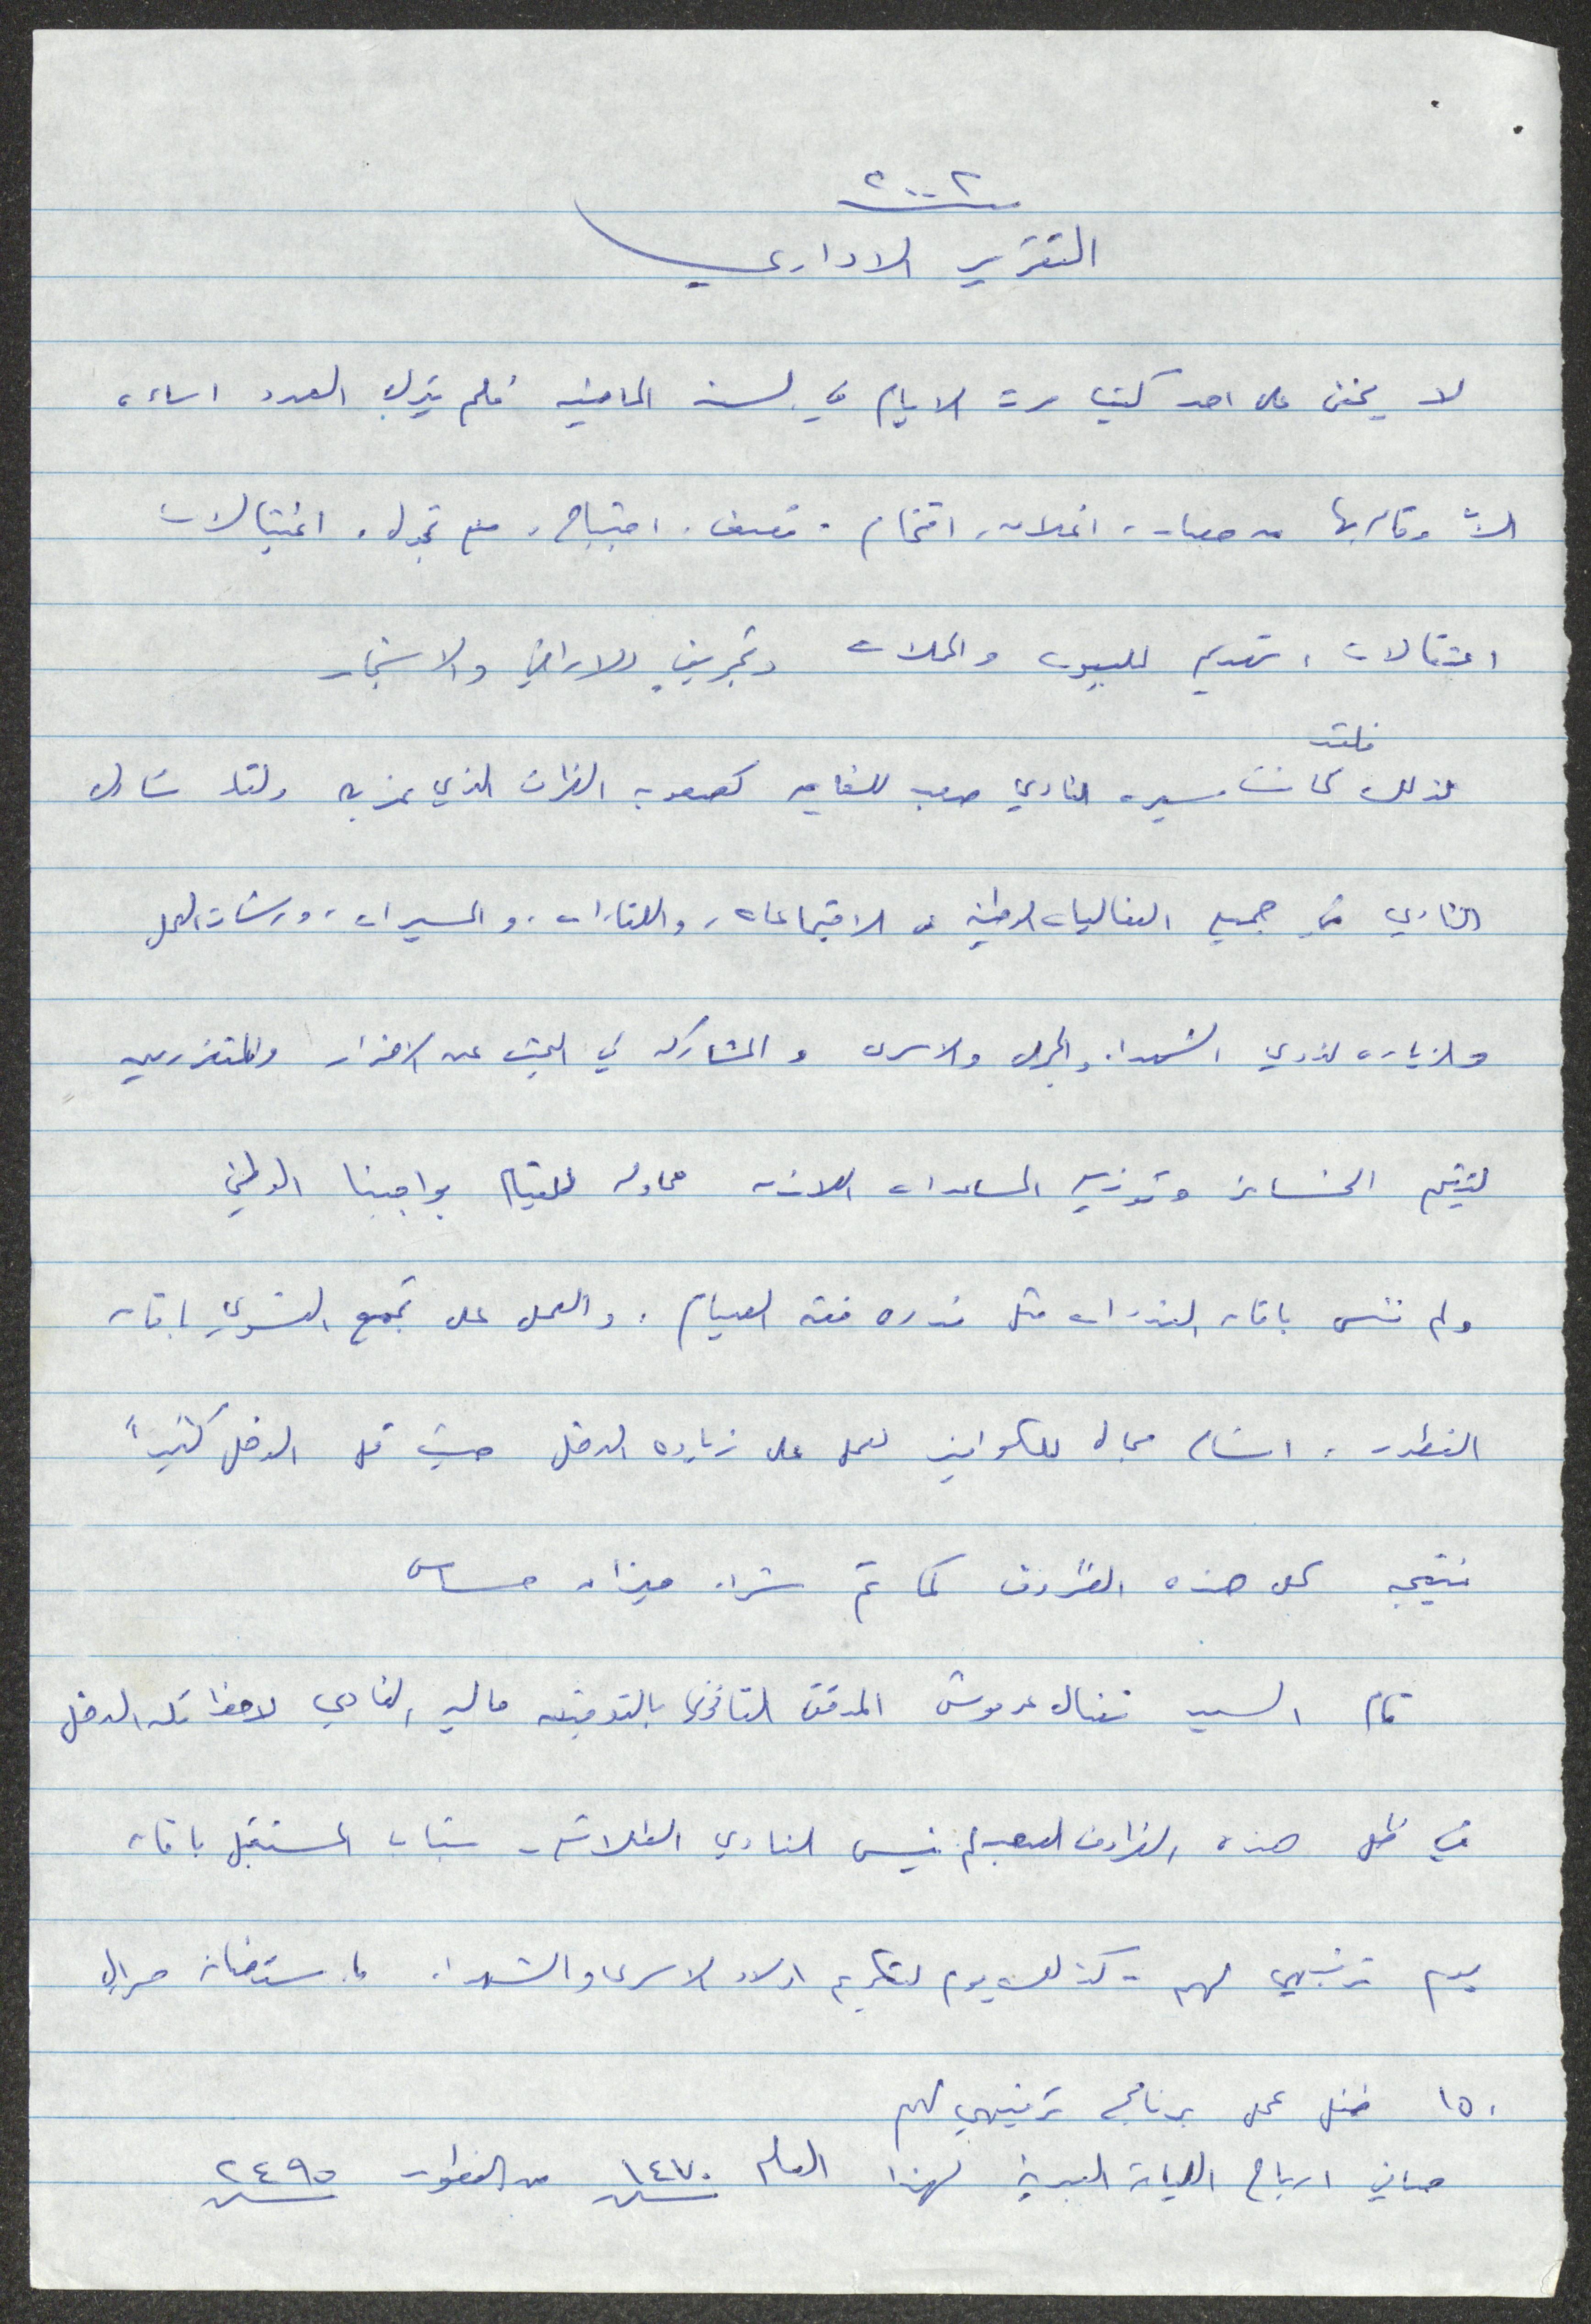 ٢٠٠٢
التقرير الاداري
لا يخفى على احد كيف مرت الايام في السنة الماضيه فلم يترك العدو اساءه
الا وقام بها من حصار، اغلاق، اقتحام، قصف، اجتياح، منع تجول، اغتيالات
اعتقالات، تهديم للبيوت والمحلات وتجريف للاراضي والاشجار
فلقد
لذلك كانت مسيره النادي صعب للغايه كصعوبه الظرف الذي نمر به ولقد شارك
النادي في جميع الفعاليات الوطنية من الاجتماعات، واللقاءات، والمسيرات، ورشات العمل
والزياره لذوي الشهداء والجرحى والاسرى والمشاركه في البحث عن الاضرار والمتضررين
لتقيم الخسائر وتوزيع المساعدات اللازمه محاوله للقيام بواجبنا الوطني
ولم ننس باقامه الندوات مثل ندوه فقه الصيام، والعمل على تجمع النسوي اقامه
الفطور، استئجار محاله للكوافير لعمل على زياده الدخل حيث قل الدخل كثيراً
نتيجه كل هذه الظروف كما تم شراء ميزان حساس
قام السيد نضال عرموش المدقق القانوني بالتدقيق ماليه النادي لاحظ قله الدخل
في ظل هذه الظروف الصعبه لم ينس النادي الطلائع، شباب المستقبل باقامه
يوم ترفيهي لهم، كذلك يوم لتكريم اولاد الاسرى والشهداء، ما استضافه حوالي
١٥٠ طفل عمل برنامج ترفيهي لهم
صافي ارباح اللياقة البدنية لهذا العام ١٤٧٠ من الفطور ٢٤٩٥